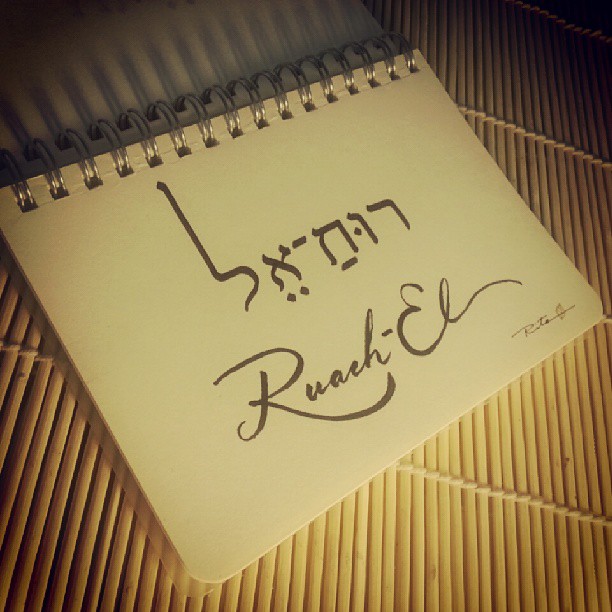 רוּחַ־אֵל
Ruach-El
Rita